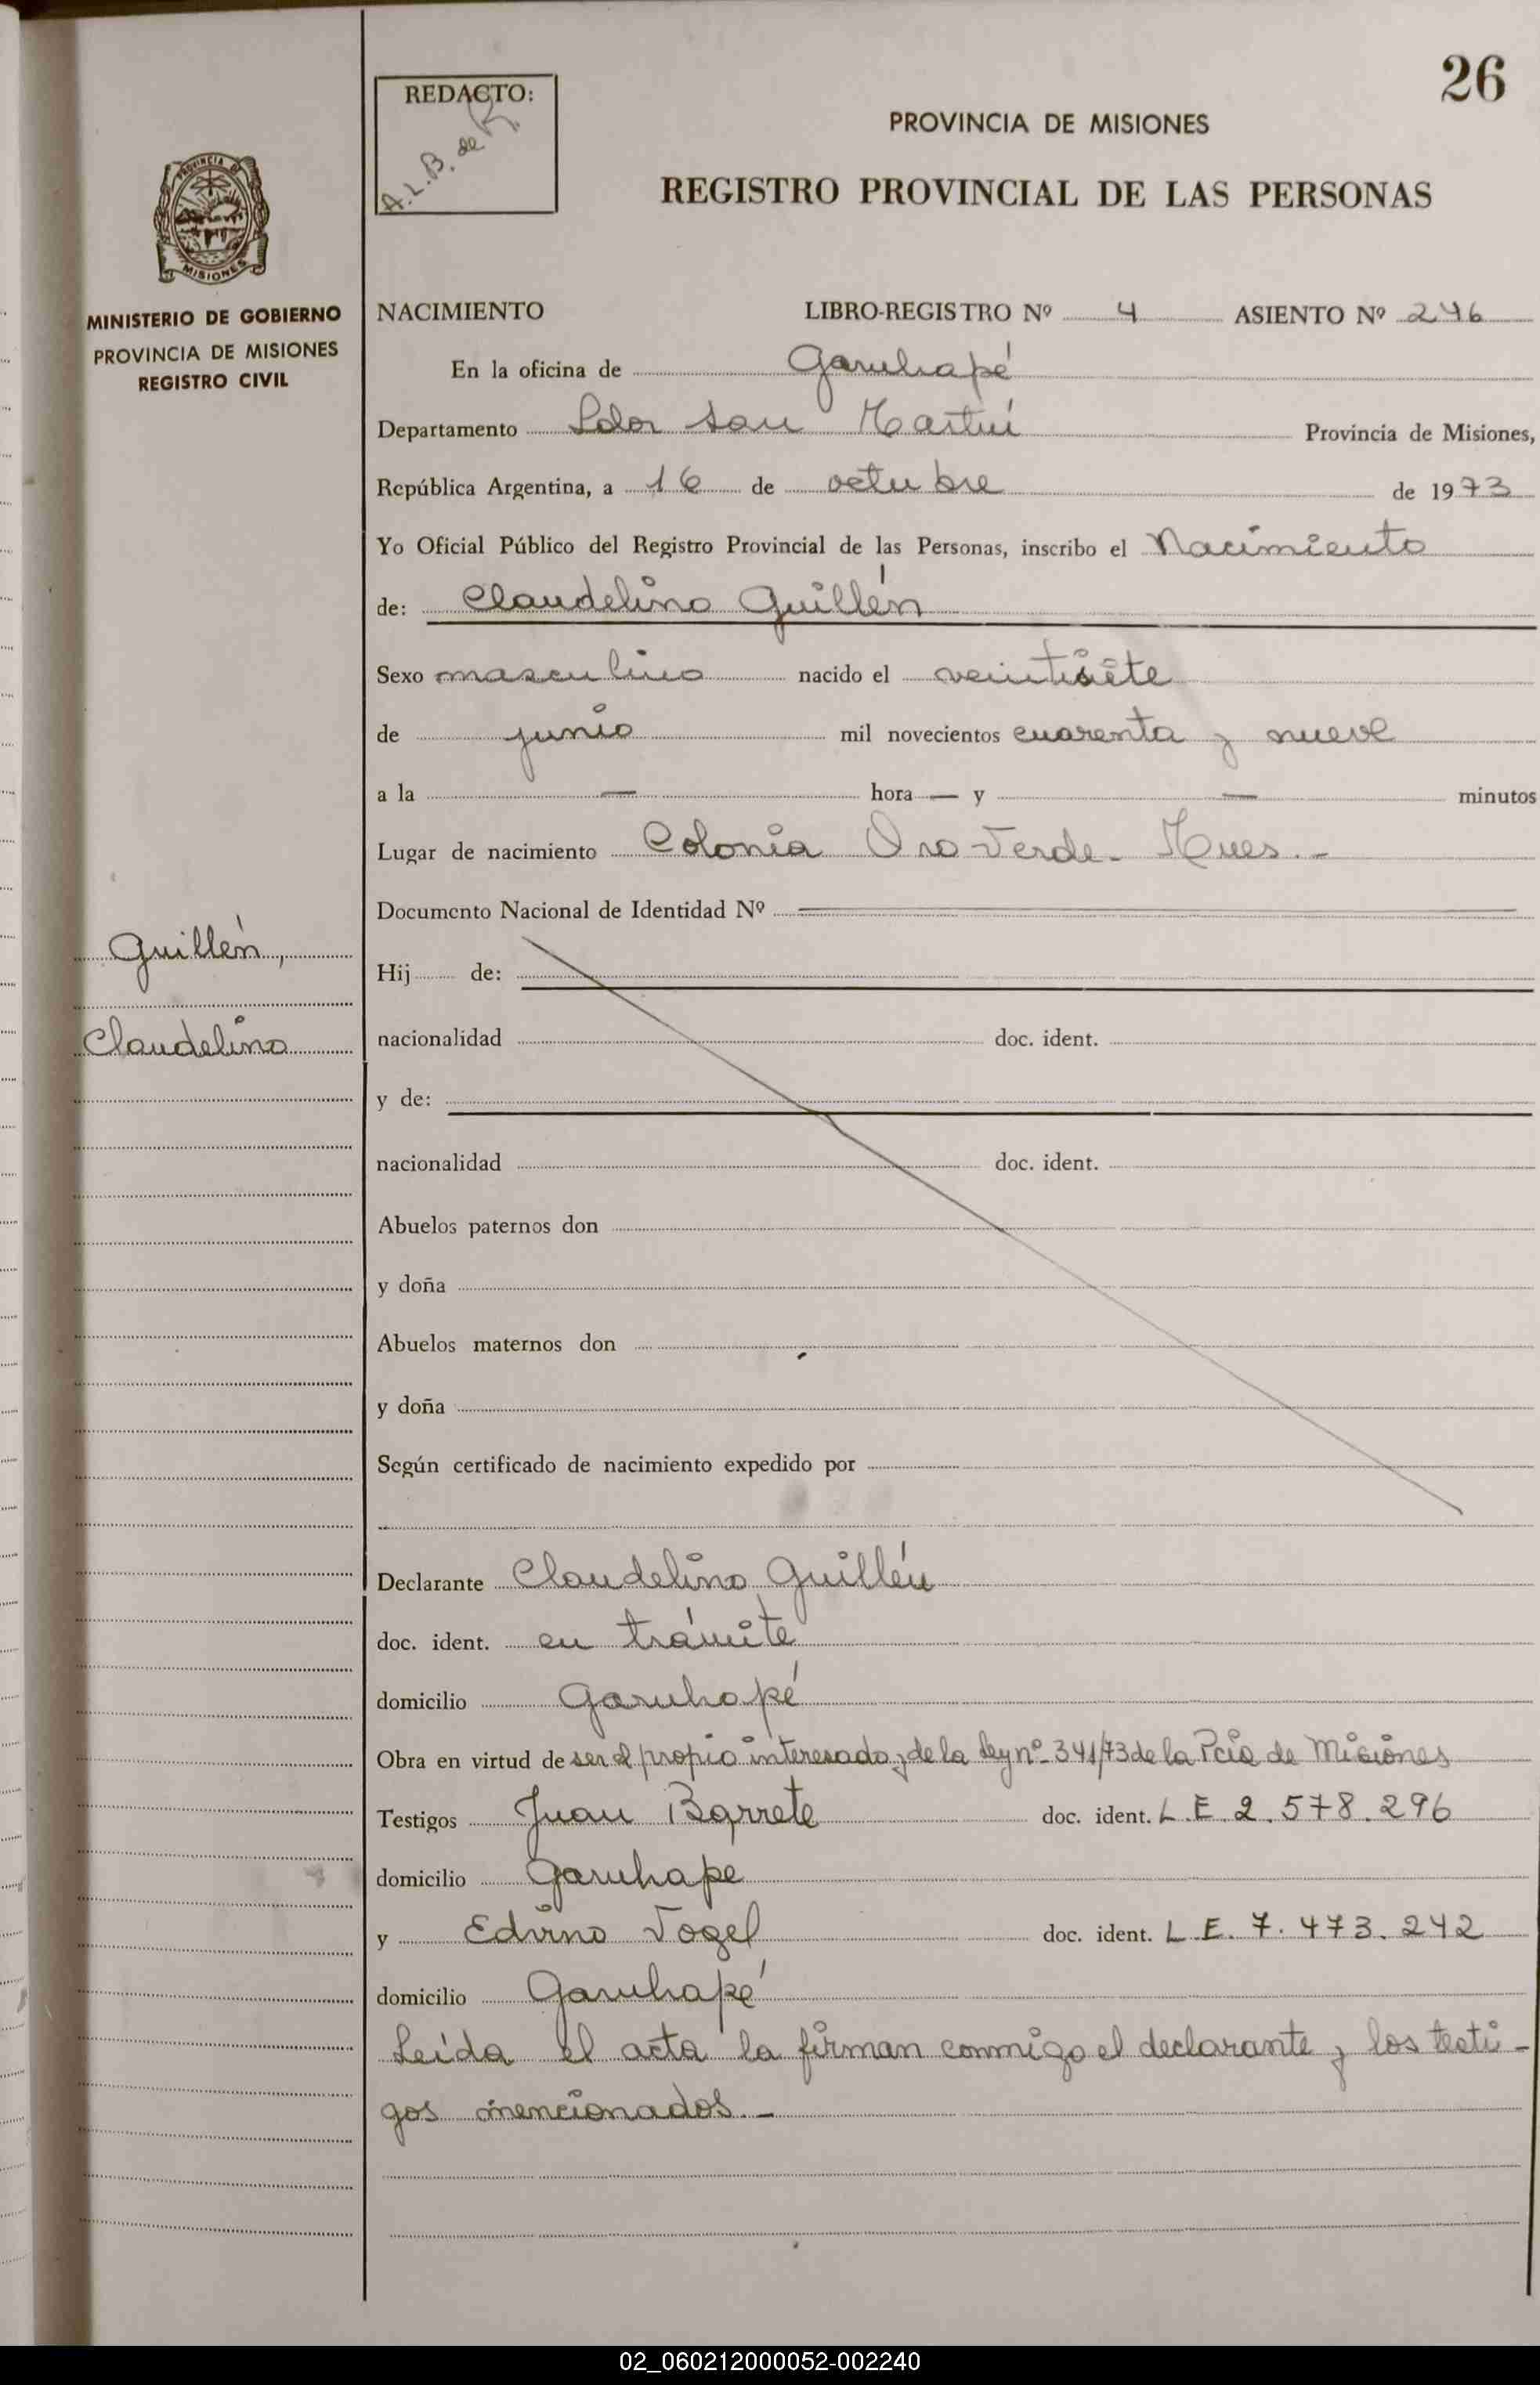 26
REDACTO:
A.L.B. de R.
PROVINCIA DE MISIONES
REGISTRO PROVINCIAL DE LAS PERSONAS
PROVINCIA DE
MISIONES
MINISTERIO DE GOBIERNO
PROVINCIA DE MISIONES
REGISTRO CIVIL
NACIMIENTO LIBRO-REGISTRO Nº 4 ASIENTO Nº 246
En la oficina de Garuhapé
Departamento Ldor San Martín Provincia de Misiones,
República Argentina, a 16 de octubre de 1973
Yo Oficial Público del Registro Provincial de las Personas, inscribo el Nacimiento
de: Claudelino Guillén
Sexo masculino nacido el veintisiete
de junio mil novecientos cuarenta y nueve
a la — hora — y — minutos
Lugar de nacimiento Colonia Oro Verde - Mnes. -
Documento Nacional de Identidad Nº
Guillén,
Claudelino
Hij de:
nacionalidad doc. ident.
y de:
nacionalidad doc. ident.
Abuelos paternos don
y doña
Abuelos maternos don
y doña
Según certificado de nacimiento expedido por
Declarante Claudelino Guillén
doc. ident. en trámite
domicilio Garuhapé
Obra en virtud de ser el propio interesado y de la Ley nº 341/73 de la Pcia de Misiones
Testigos Juan Barrete doc. ident. L.E. 2.578.296
domicilio Garuhape
y Edvino Vogel doc. ident. L.E. 7.473.242
domicilio Garuhapé
Leída el acta la firman conmigo el declarante y los testi-
gos mencionados. -
02_060212000052-002240